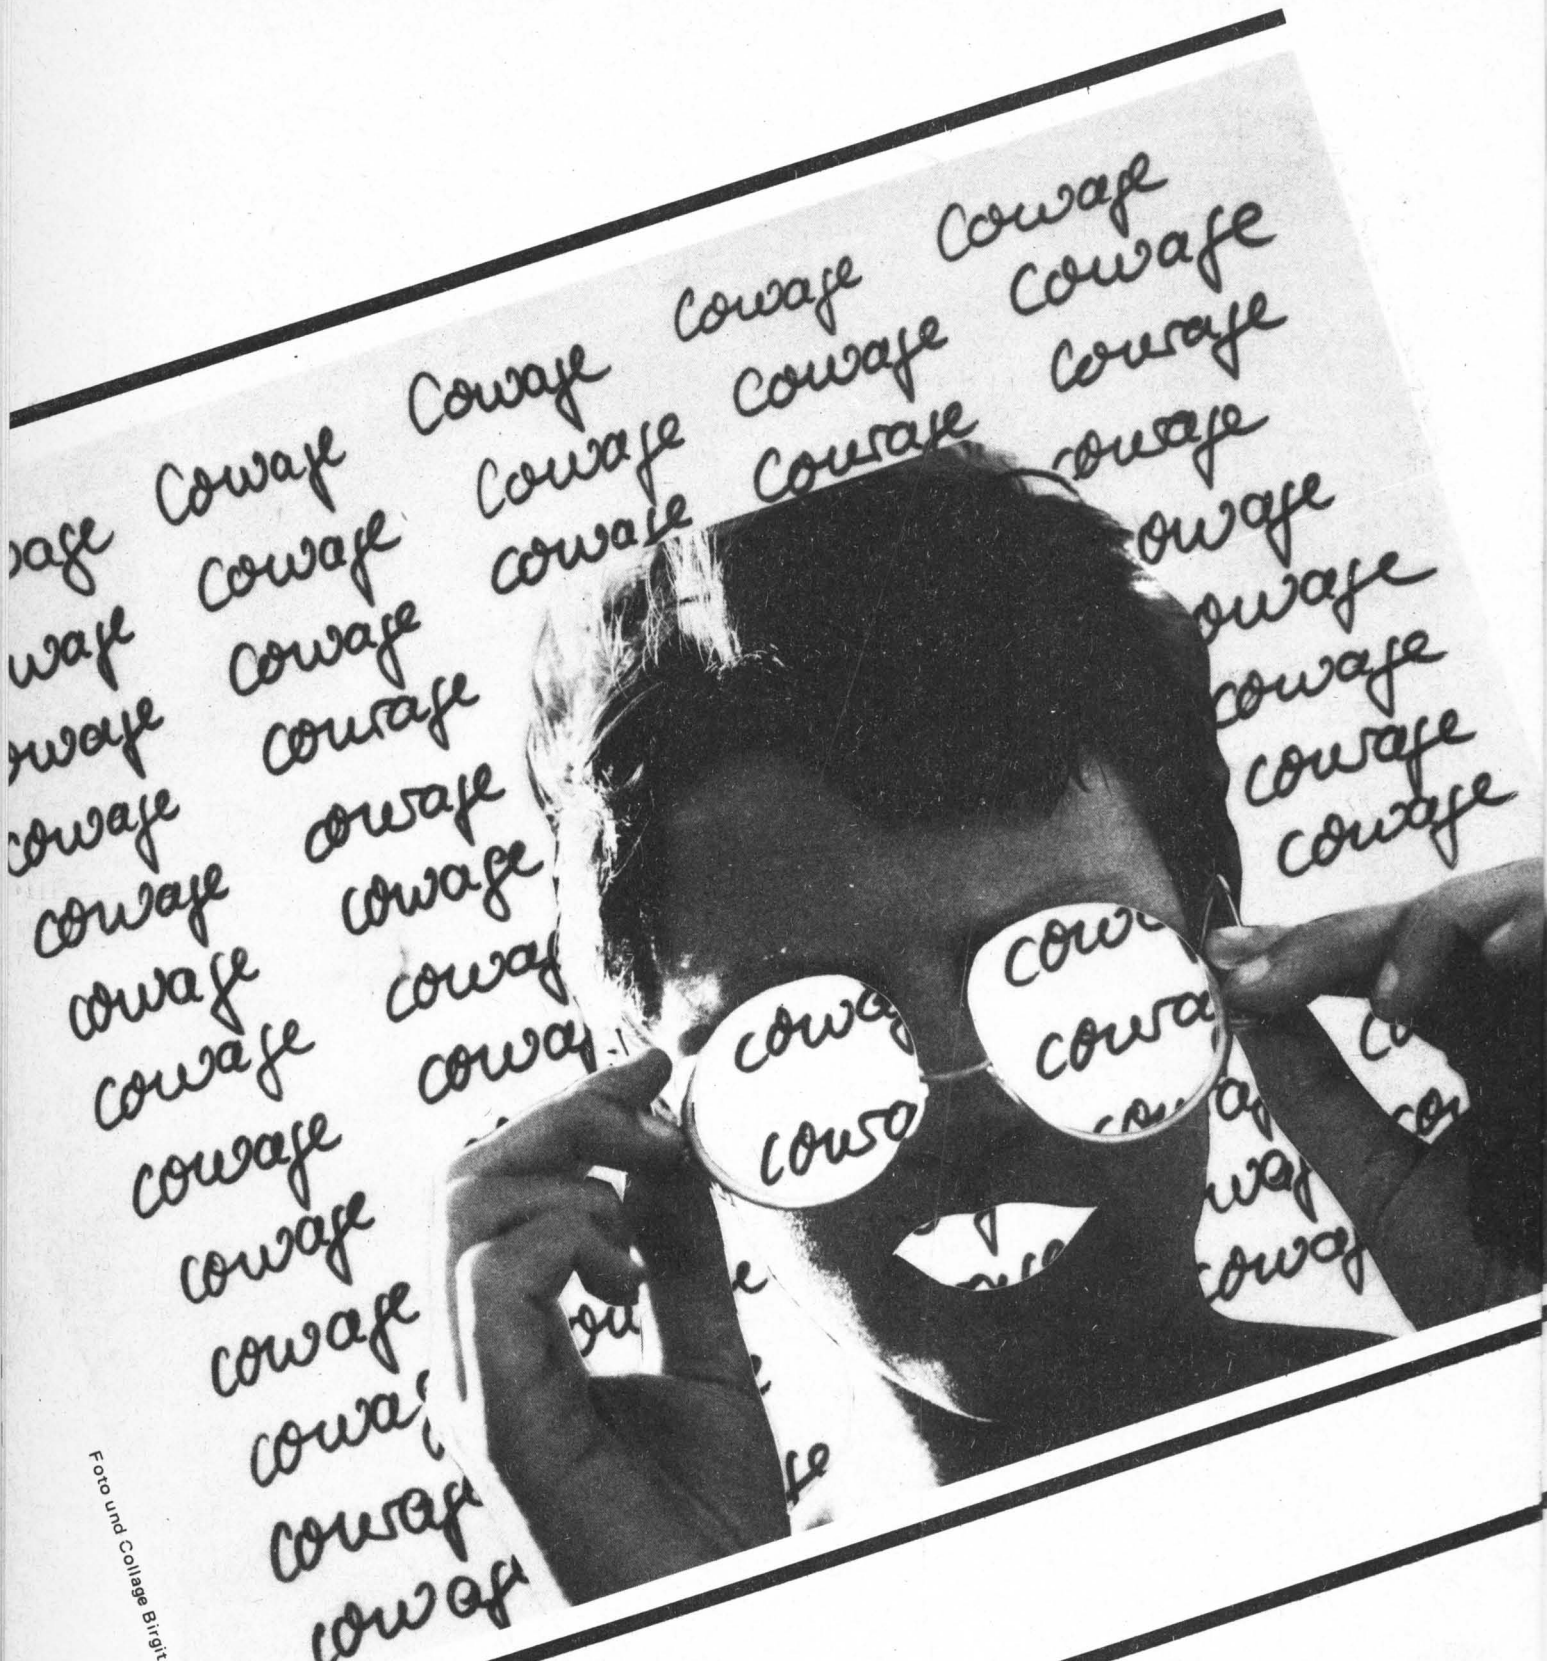 rage Courage Courage Courage Courage
urage Courage Courage Courage Courage
ourage Courage Courage Courage Courage
courage courage courage
courage courage ourage
courage courage ourage
courage courag courage
courage coura courage
courage courage
courage coura cour
coura ou e coura coura
courag e our cou ag cou
courag ge urag
courag
Foto und Collage Birgit